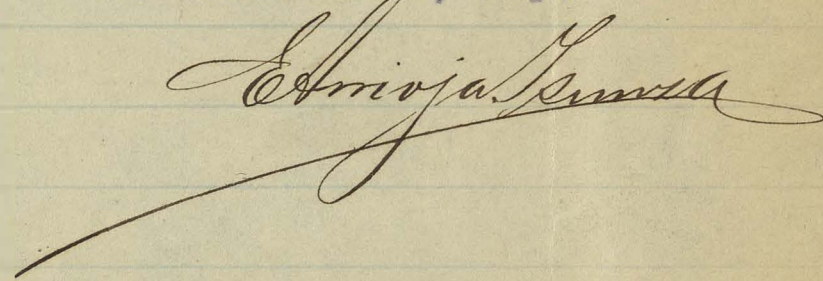 E Arrioja Isunza